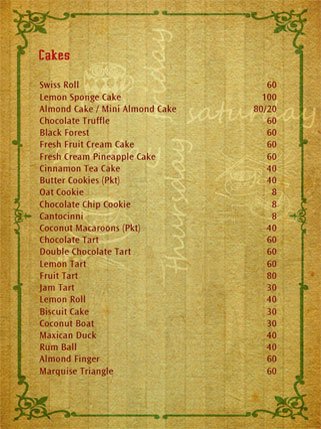 Cakes
Swiss Roll 60
Lemon Sponge Cake 100
Almond Cake / Mini Almond Cake 80/20
Chocolate Truffle 60
Black Forest 60
Fresh Fruit Cream Cake 60
Fresh Cream Pineapple Cake 60
Cinnamon Tea Cake 40
Butter Cookies (Pkt) 40
Oat Cookie 8
Chocolate Chip Cookie 8
Cantocinni 8
Coconut Macaroons (Pkt) 40
Chocolate Tart 60
Double Chocolate Tart 60
Lemon Tart 60
Fruit Tart 80
Jam Tart 30
Lemon Roll 40
Biscuit Cake 30
Coconut Boat 30
Maxican Duck 40
Rum Ball 40
Almond Finger 60
Marquise Triangle 60
thursday